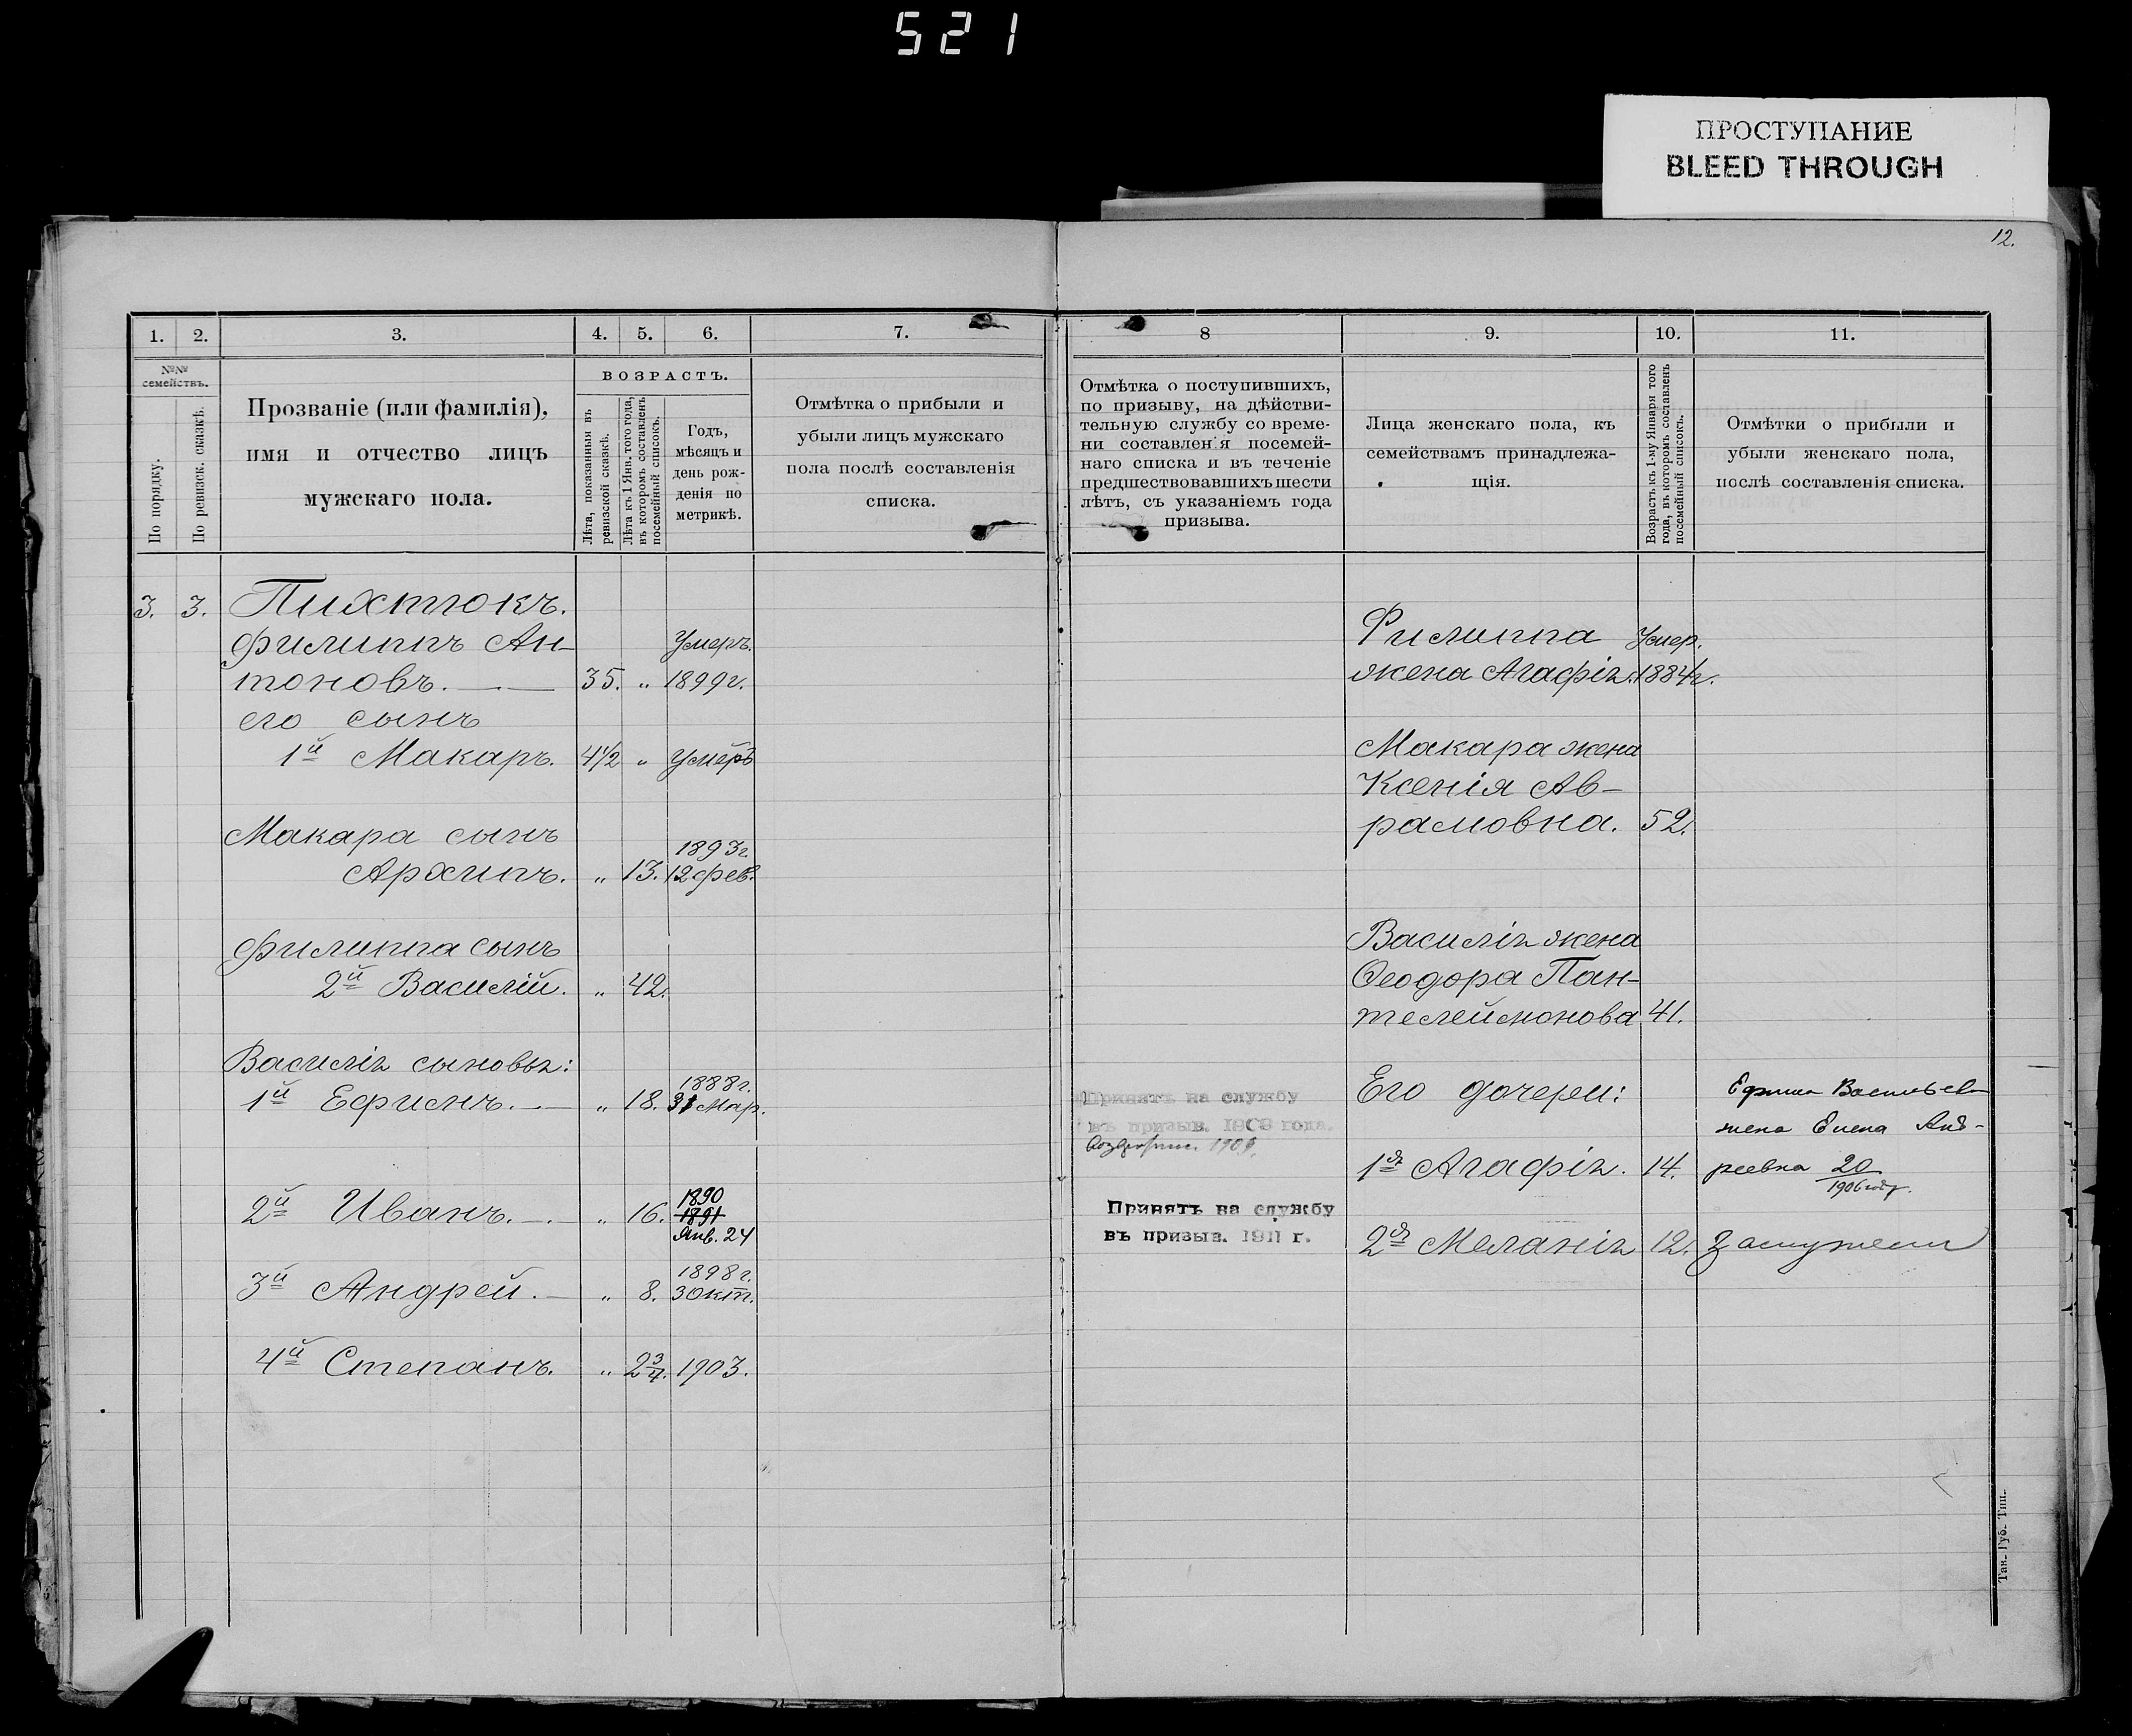 521
ПРОСТУПАНИЕ
BLEED THROUGH
12.
1. 2. 3. 4. 5. 6. 7.
№№ семействъ.
По порядку.
По ревизск. сказкѣ.
Прозваніе (или фамилія),
имя и отчество лицъ
мужскаго пола.
ВОЗРАСТЪ.
Лѣта, показанныя въ
ревизской сказкѣ.
Лѣта къ 1 Янв. того года,
въ которомъ составленъ
посемейный списокъ.
Годъ,
мѣсяцъ и
день рож-
денія по
метрикѣ.
Отмѣтка о прибыли и
убыли лицъ мужскаго
пола послѣ составленія
списка.
3. 3. Пихтокъ.
Филиппъ Ан- Умеръ.
тоновъ. 35. „ 1899г.
его сынъ
1й Макаръ. 4½ „ Умеръ
Макара сынъ 1893г.
Архипъ. „ 13. 12 фев.
Филиппа сынъ
2й Василій. „ 42.
Василія сыновья: 1888г.
1й Ефимъ. „ 18. 31 Мар.
1890
2й Иванъ. „ 16. 1891
Янв. 24
1898г.
3й Андрей. „ 8. 3 Окт.
4й Степанъ. „ 2¾. 1903.
8 9. 10. 11.
Отмѣтка о поступившихъ,
по призыву, на дѣйстви-
тельную службу со време-
ни составленія посемей-
наго списка и въ теченіе
предшествовавшихъ шести
лѣтъ, съ указаніемъ года
призыва.
Лица женскаго пола, къ
семействамъ принадлежа-
щія.
Возрастъ къ 1-му Января того
года, въ которомъ составленъ
посемейный списокъ.
Отмѣтки о прибыли и
убыли женскаго пола,
послѣ составленія списка.
Филиппа Умер.
жена Агафія. 1884г.
Макара жена
Ксенія Ав-
рамовна. 52.
Василія жена
Ѳеодора Пан-
телеймонова 41.
Принятъ на службу
въ призыв. 1909 года.
Его дочери:
Ефима Васильев
жена Елена Анд-
1я Агафія. 14. реевна 20
1906 году.
Принятъ на службу
въ призыв. 1911 г.
2я Меланія 12. Замужем
Тав. Губ. Тип.